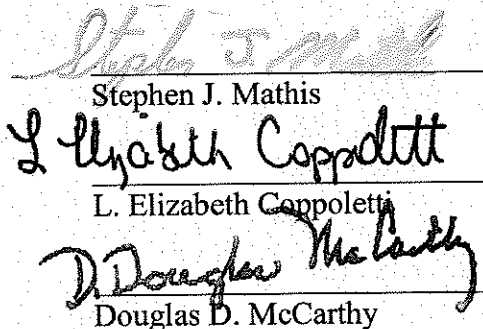 Stephen J. Mathis
Stephen J. Mathis
L Elizabeth Coppoletti
L. Elizabeth Coppoletti
D. Douglas McCarthy
Douglas D. McCarthy